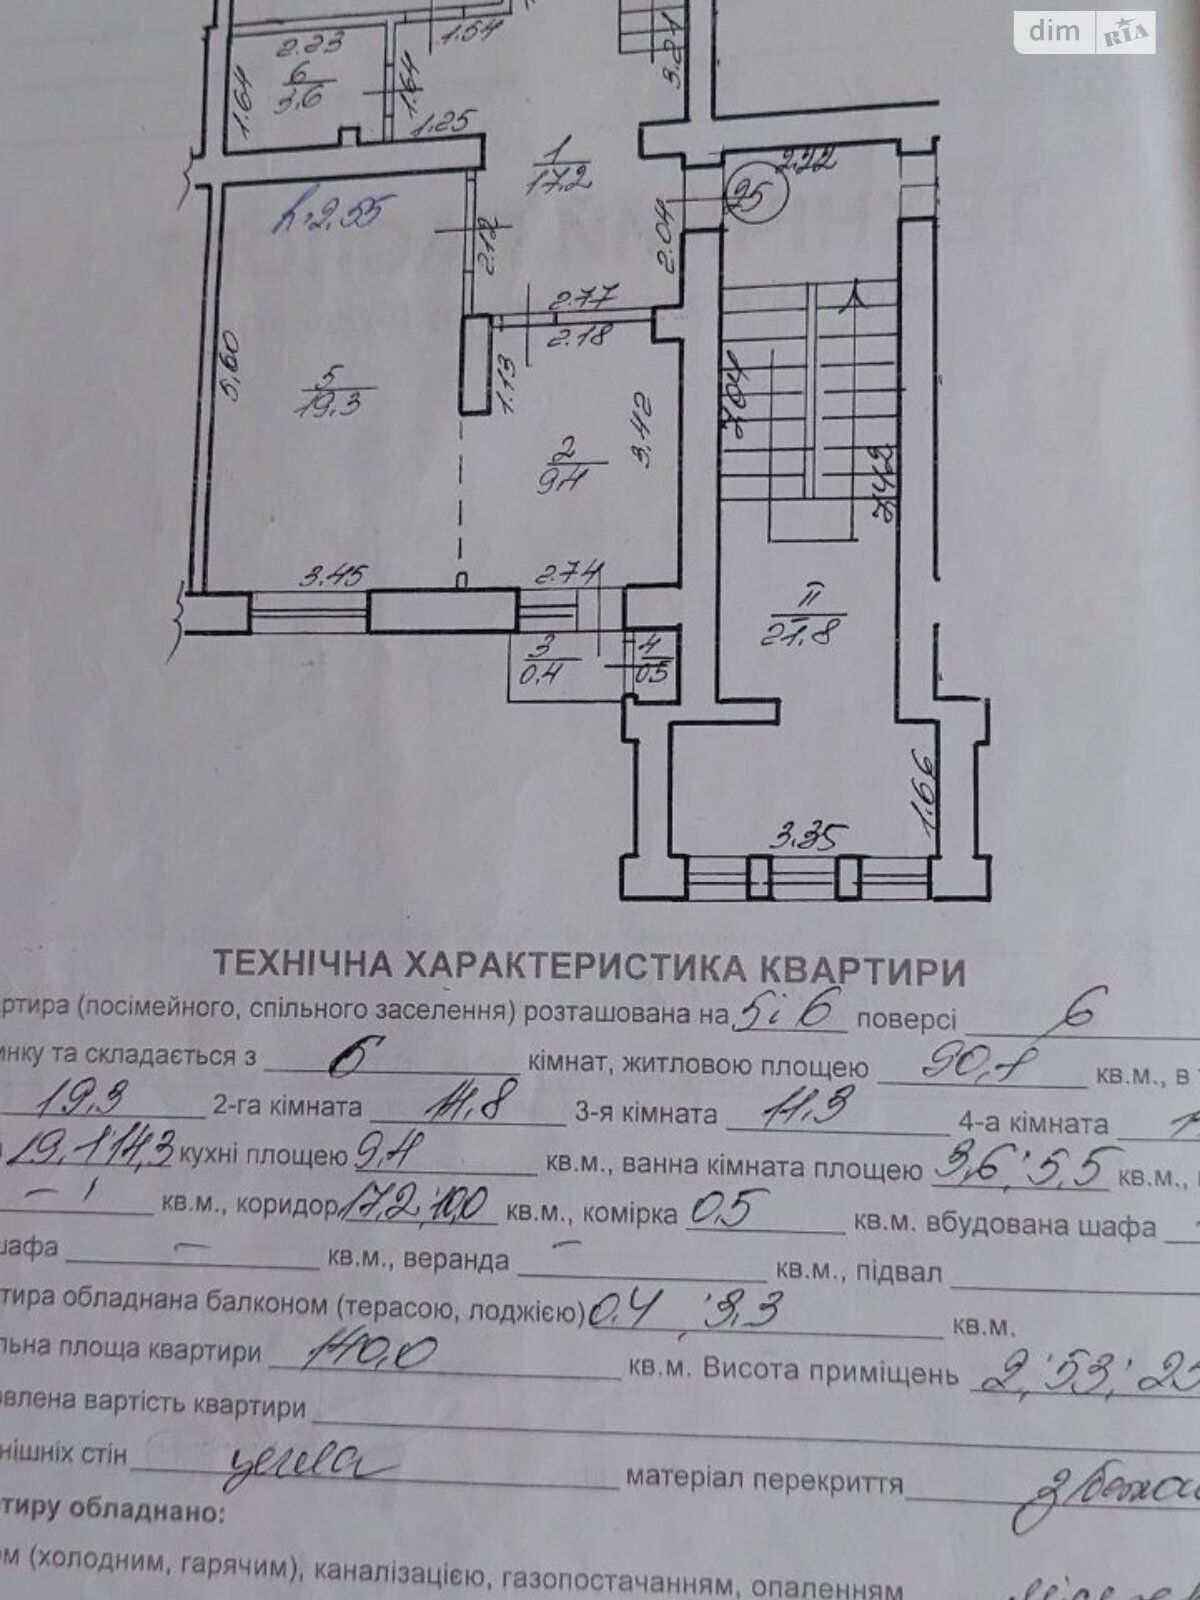 dim RIA
1.54
2.23
6
3.6
1.64
1.64
1.25
3.21
1
17.2
2.22
25
h=2,55
2.12
2.04
2.77
2.18
5,60
1.13
5
19.3
3.42
2
9.4
7.04
7,42
3.45
2.74
II
21,8
3
0,4
4
0,5
1.66
3.35
ТЕХНІЧНА ХАРАКТЕРИСТИКА КВАРТИРИ
ртира (посімейного, спільного заселення) розташована на 5 і 6 поверсі 6
инку та складається з 6 кімнат, житловою площею 90,1 кв.м., в
19,3 2-га кімната 11,8 3-я кімната 11,3 4-а кімната
19,1 14,3 кухні площею 9,4 кв.м., ванна кімната площею 3,6; 5,5 кв.м.,
кв.м., коридор 17,2; 10,0 кв.м., комірка 0,5 кв.м. вбудована шафа
шафа — кв.м., веранда — кв.м., підвал
тира обладнана балконом (терасою, лоджією) 0,4; 3,3 кв.м.
льна площа квартири 140,0 кв.м. Висота приміщень
овлена вартість квартири
нішніх стін цегла матеріал перекриття
тиру обладнано:
ом (холодним, гарячим), каналізацією, газопостачанням, опаленням